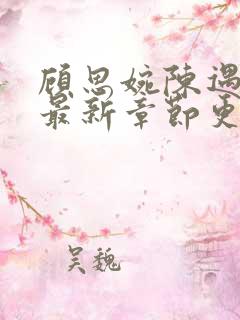 顾思婉陈遇
最新章节更
吴魏